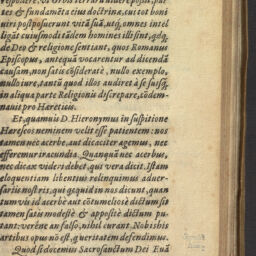 tes & fundamēta eius doctrinæ, cui tot boni
uiri postposuerunt vitā suā, utq, omnes intel
ligāt cuiusmodi tādem homines illi sint, qd q,
de Deo & religione sentiant, quos Romanus
Episcopus, antequā vocarentur ad dicendā
causam, non satis cōsideratè, nullo exemplo,
nullo iure, tantū quod illos audiret à se suisq,
in aliqua parte Religionis discrepare, cōdem-
nauit pro Hæreticis.
Et, quamuis D. Hieronymus in suspitione
Hæreseos neminem velit esse patientem: nos
tamen nec acerbe, aut dicaciter agemus, nec
efferemur iracundia. Quanquā nec acerbus,
nec dicax videri debet, qui vera dicit. Istam
eloquentiam libentius relinquimus aduer-
sariis nostris, qui quicquid in nos dicunt, quan
tumvis id acerbè aut cōtumeliosè dictum sit
tamen satis modestè & appositè dictum pu-
tant: verène an falso, nihil curant. Nobis his
artibus opus nō est, qui veritatem defendimus.
Quod si docemus Sacrosanctum Dei Euā